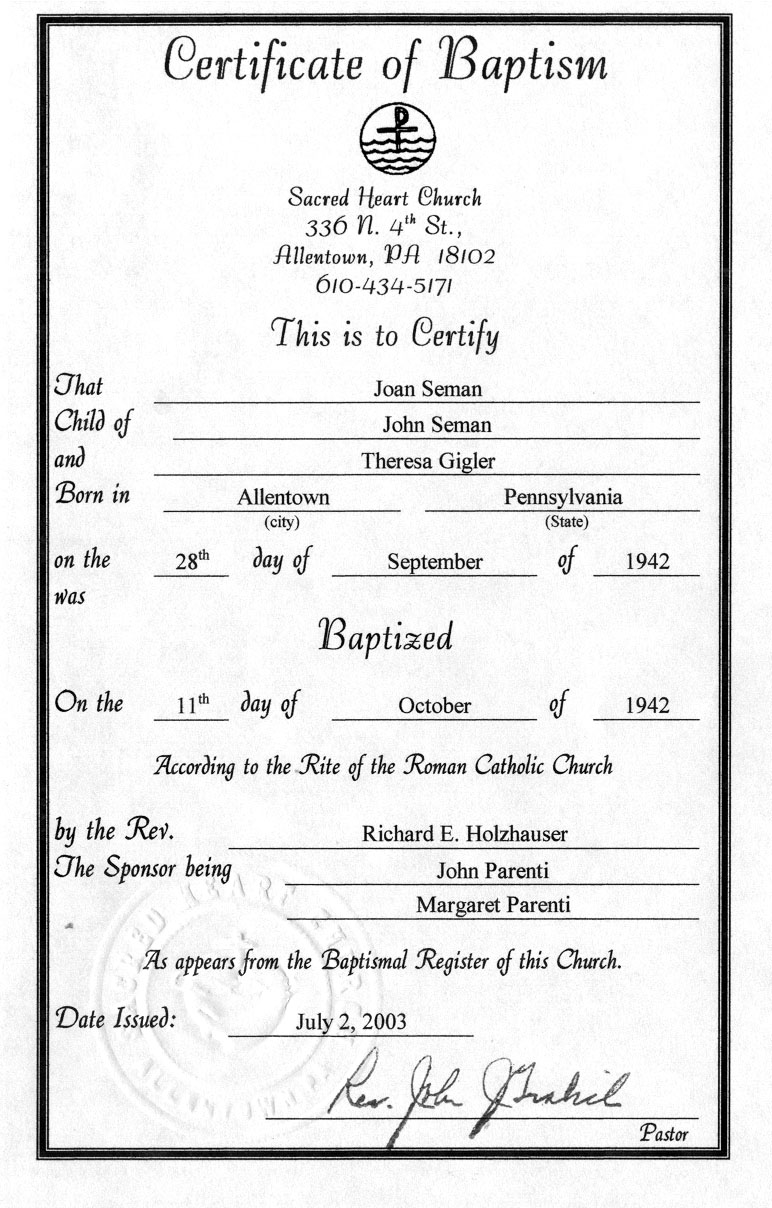 Certificate of Baptism
Sacred Heart Church
336 N. 4th St.,
Allentown, PA 18102
610-434-5171
This is to Certify
That Joan Seman
Child of John Seman
and Theresa Gigler
Born in Allentown Pennsylvania
(city) (State)
on the 28th day of September of 1942
was
Baptized
On the 11th day of October of 1942
According to the Rite of the Roman Catholic Church
by the Rev. Richard E. Holzhauser
The Sponsor being John Parenti
Margaret Parenti
SACRED HEART CHURCH
As appears from the Baptismal Register of this Church.
Date Issued: July 2, 2003
Rev. John J
Pastor